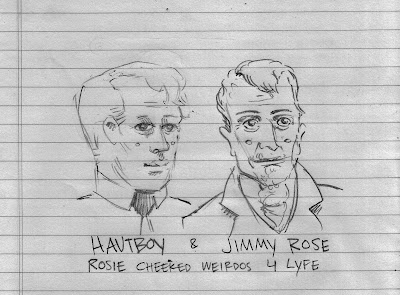 HAUTBOY & JIMMY ROSE
ROSIE CHEEKED WEIRDOS 4 LYFE